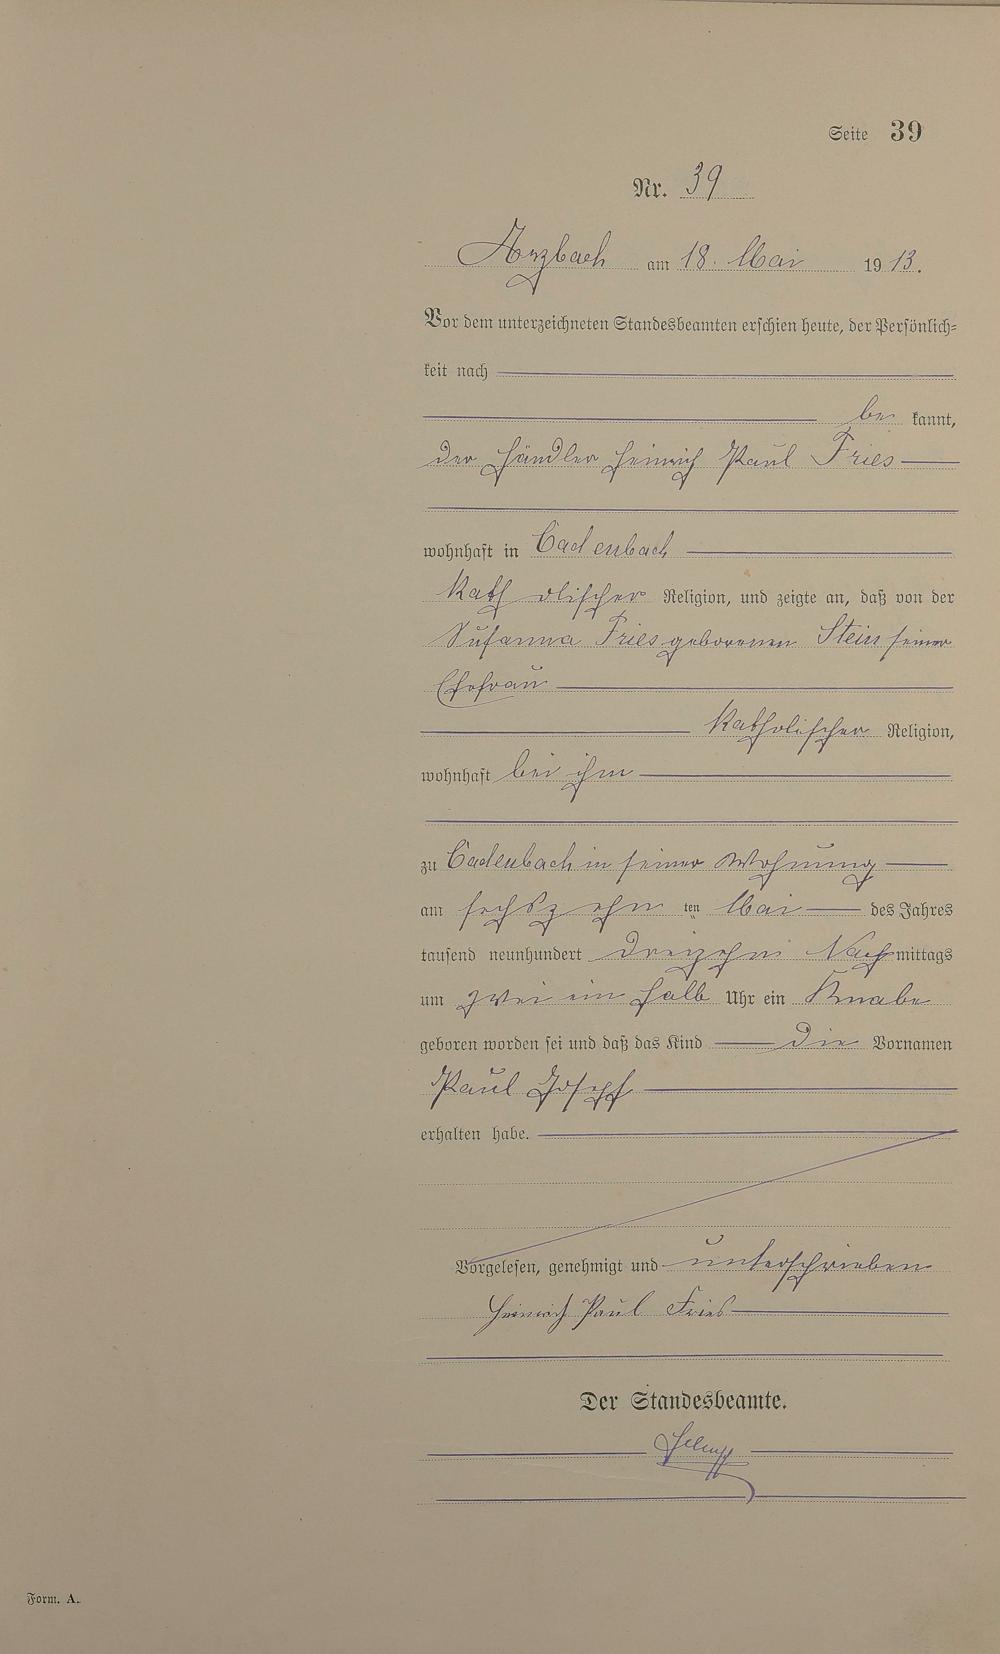 Seite 39
Nr. 39
Arzbach am 18. Mai 1913.
Vor dem unterzeichneten Standesbeamten erschien heute, der Persönlich=
keit nach
be kannt,
der Händler Heinrich Paul Fries
wohnhaft in Cadenbach
katholischer Religion, und zeigte an, daß von der
Susanna Fries geborenen Stein seiner
Ehefrau
katholischer Religion,
wohnhaft bei ihm
zu Cadenbach in seiner Wohnung
am sechszehn ten Mai des Jahres
tausend neunhundert dreizehn Nachmittags
um zwei ein halb Uhr ein Knabe
geboren worden sei und daß das Kind die Vornamen
Paul Josepf
erhalten habe.
Vorgelesen, genehmigt und unterschrieben
Heinrich Paul Fries
Der Standesbeamte.
Form. A.